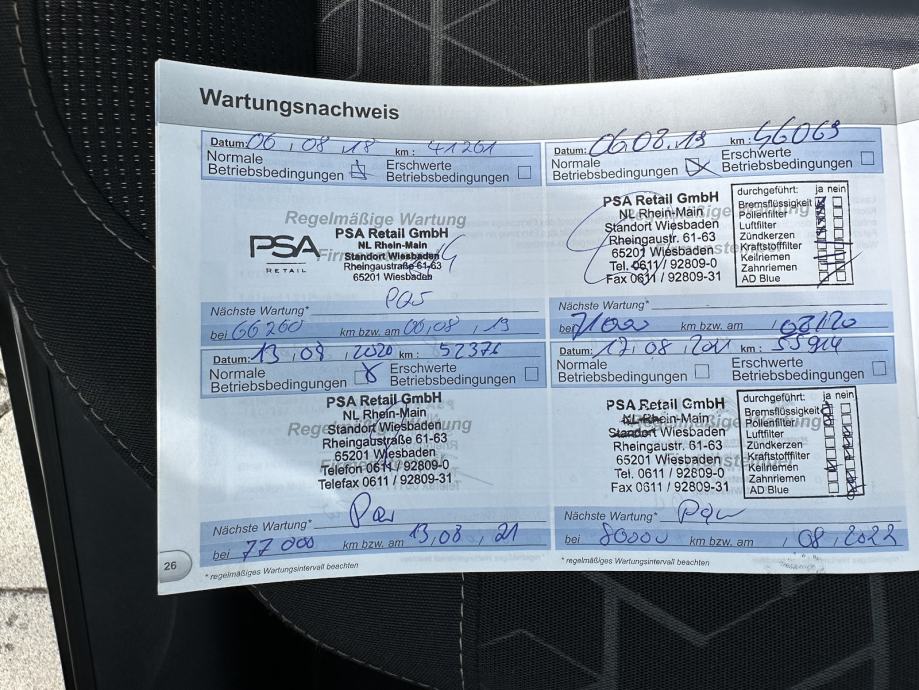 Wartungsnachweis
Datum: 06 . 08 . 18 km : 41261
Normale
Betriebsbedingungen
Erschwerte
Betriebsbedingungen
Regelmäßige Wartung
PSA
RETAIL
PSA Retail GmbH
NL Rhein-Main
Standort Wiesbaden
Rheingaustraße 61-63
65201 Wiesbaden
Nächste Wartung*
bei 66260 km bzw. am 06,08 , 19
Datum: 06.08.19 km : 46069
Normale
Betriebsbedingungen
Erschwerte
Betriebsbedingungen
PSA Retail GmbH
NL Rhein-Main
Standort Wiesbaden
Rheingaustr. 61-63
65201 Wiesbaden
Tel. 0611 / 92809-0
Fax 0611 / 92809-31
durchgeführt: ja nein
Bremsflüssigkeit
Pollenfilter
Luftfilter
Zündkerzen
Kraftstoffilter
Keilriemen
Zahnriemen
AD Blue
Nächste Wartung*
bei 71000 km bzw. am , 08/20
Datum: 13 , 08 , 2020 km : 52376
Normale
Betriebsbedingungen
Erschwerte
Betriebsbedingungen
PSA Retail GmbH
NL Rhein-Main
Standort Wiesbaden
Rheingaustraße 61-63
65201 Wiesbaden
Telefon 0611 / 92809-0
Telefax 0611 / 92809-31
Nächste Wartung*
bei 77000 km bzw. am 13,08 , 21
Datum: 17 .08 .2021 km : 55914
Normale
Betriebsbedingungen
Erschwerte
Betriebsbedingungen
PSA Retail GmbH
NL Rhein-Main
Standort Wiesbaden
Rheingaustr. 61-63
65201 Wiesbaden
Tel. 0611 / 92809-0
Fax 0611 / 92809-31
durchgeführt: ja nein
Bremsflüssigkeit
Pollenfilter
Luftfilter
Zündkerzen
Kraftstoffilter
Keilriemen
Zahnriemen
AD Blue
Nächste Wartung*
bei 80000 km bzw. am , 08 , 2022
26
* regelmäßiges Wartungsintervall beachten
* regelmäßiges Wartungsintervall beachten